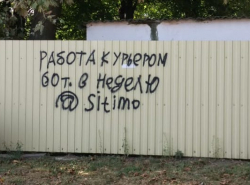 РАБОТА КУРЬЕРОМ
60 т. в неделю
@ Sitimo